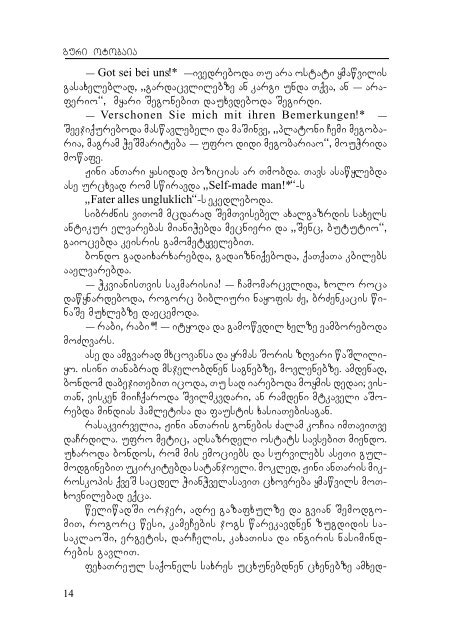 გური ოტობაია
— Got sei bei uns!* —ივედრებოდა თუ არა ოსტატი ყმაწვილის
გასახელებლად, „გარდაცვლილებზე ან კარგი უნდა თქვა, ან — არა-
ფერიო“, მყარი შეგონებით დაუხვდებოდა შეგირდი.
— Verschonen Sie mich mit ihren Bemerkungen!* —
შეეჯიქურებოდა მასწავლებელი და მაშინვე, „პლატონი ჩემი მეგობა-
რია, მაგრამ ჭეშმარიტება — უფრო დიდი მეგობარიაო“, მოუჭრიდა
მოწაფე.
ჟინი ანთარი ყასიდად პოზიციას არ თმობდა. თავს ასაწყლებდა
ასე ურცხვად რომ სწირავდა „Self-made man!*“-ს
„Fater alles ungluklich“-ს ეკედლებოდა.
სიბრძნის ვითომ მცდარად შემთვისებელ ახალგაზრდის სახელს
ანტიკურ ელვარებას მიანიჭებდა მეცნიერი და „შენც, ბუტუტიო“,
გაიოცებდა კეისრის გამომეტყველებით.
ბონდო გადაიხარხარებდა, გადაიზნიქებოდა, ქათქათა კბილებს
ააელვარებდა.
— ჰკვიანისთვის საკმარისია! — ჩამომარცვლიდა, ხოლო როცა
დაწყნარდებოდა, როგორც ბიბლიური ნაყოფის ძე, ბრძენკაცის წი-
ნაშე მუხლებზე დაეცემოდა.
— რაბი, რაბი*! — იტყოდა და გამოწვდილ ხელზე ეამბორებოდა
მოძღვარს.
ასე და ამგვარად მხცოვანსა და ყრმას შორის ზღვარი წაშლილი-
ყო. ისინი თანაბრად მსჯელობდნენ საგნებზე, მოვლენებზე. ამდენად,
ბონდომ დაბეჯითებით იცოდა, თუ სად იარებოდა მოყმის დედაი; ვის-
თან, ვისკენ მიიჩქაროდა შვილმკვდარი, ან რამდენი მტკაველი აშო-
რებდა მინდიას ჰამლეტისა და ფაუსტის ხასიათებისაგან.
რასაკვირველია, ჟინი ანთარის გონების ძალამ კოჩია იმთავითვე
დაჩრდილა. უფრო მეტიც, აღსაზრდელი ოსტატს სავსებით მიენდო.
უხაროდა ბონდოს, რომ მის ემოციებს და სურვილებს ასეთი გულ-
მოდგინებით უკირკიტებდა სატანჯოელი. მოკლედ, ჟინი ანთარის მიკ-
როსკოპის ქვეშ საცდელ ჭიანჭველასავით ცხოვრება ყმაწვილს მოთ-
ხოვნილებად ექცა.
წელიწადში ორჯერ, ადრე გაზაფხულზე და გვიან შემოდგო-
მით, როგორც წესი, კამეჩების ჯოგს წარეკავდნენ ზუგდიდის სა-
საკლაოში, ერგეტის, დარჩელის, კახათისა და ინგირის ნასიმინდ-
რების გავლით.
ფეხათრეულ საქონელს სახრეს უცხუნებდნენ ცხენებზე ამხედ-
14